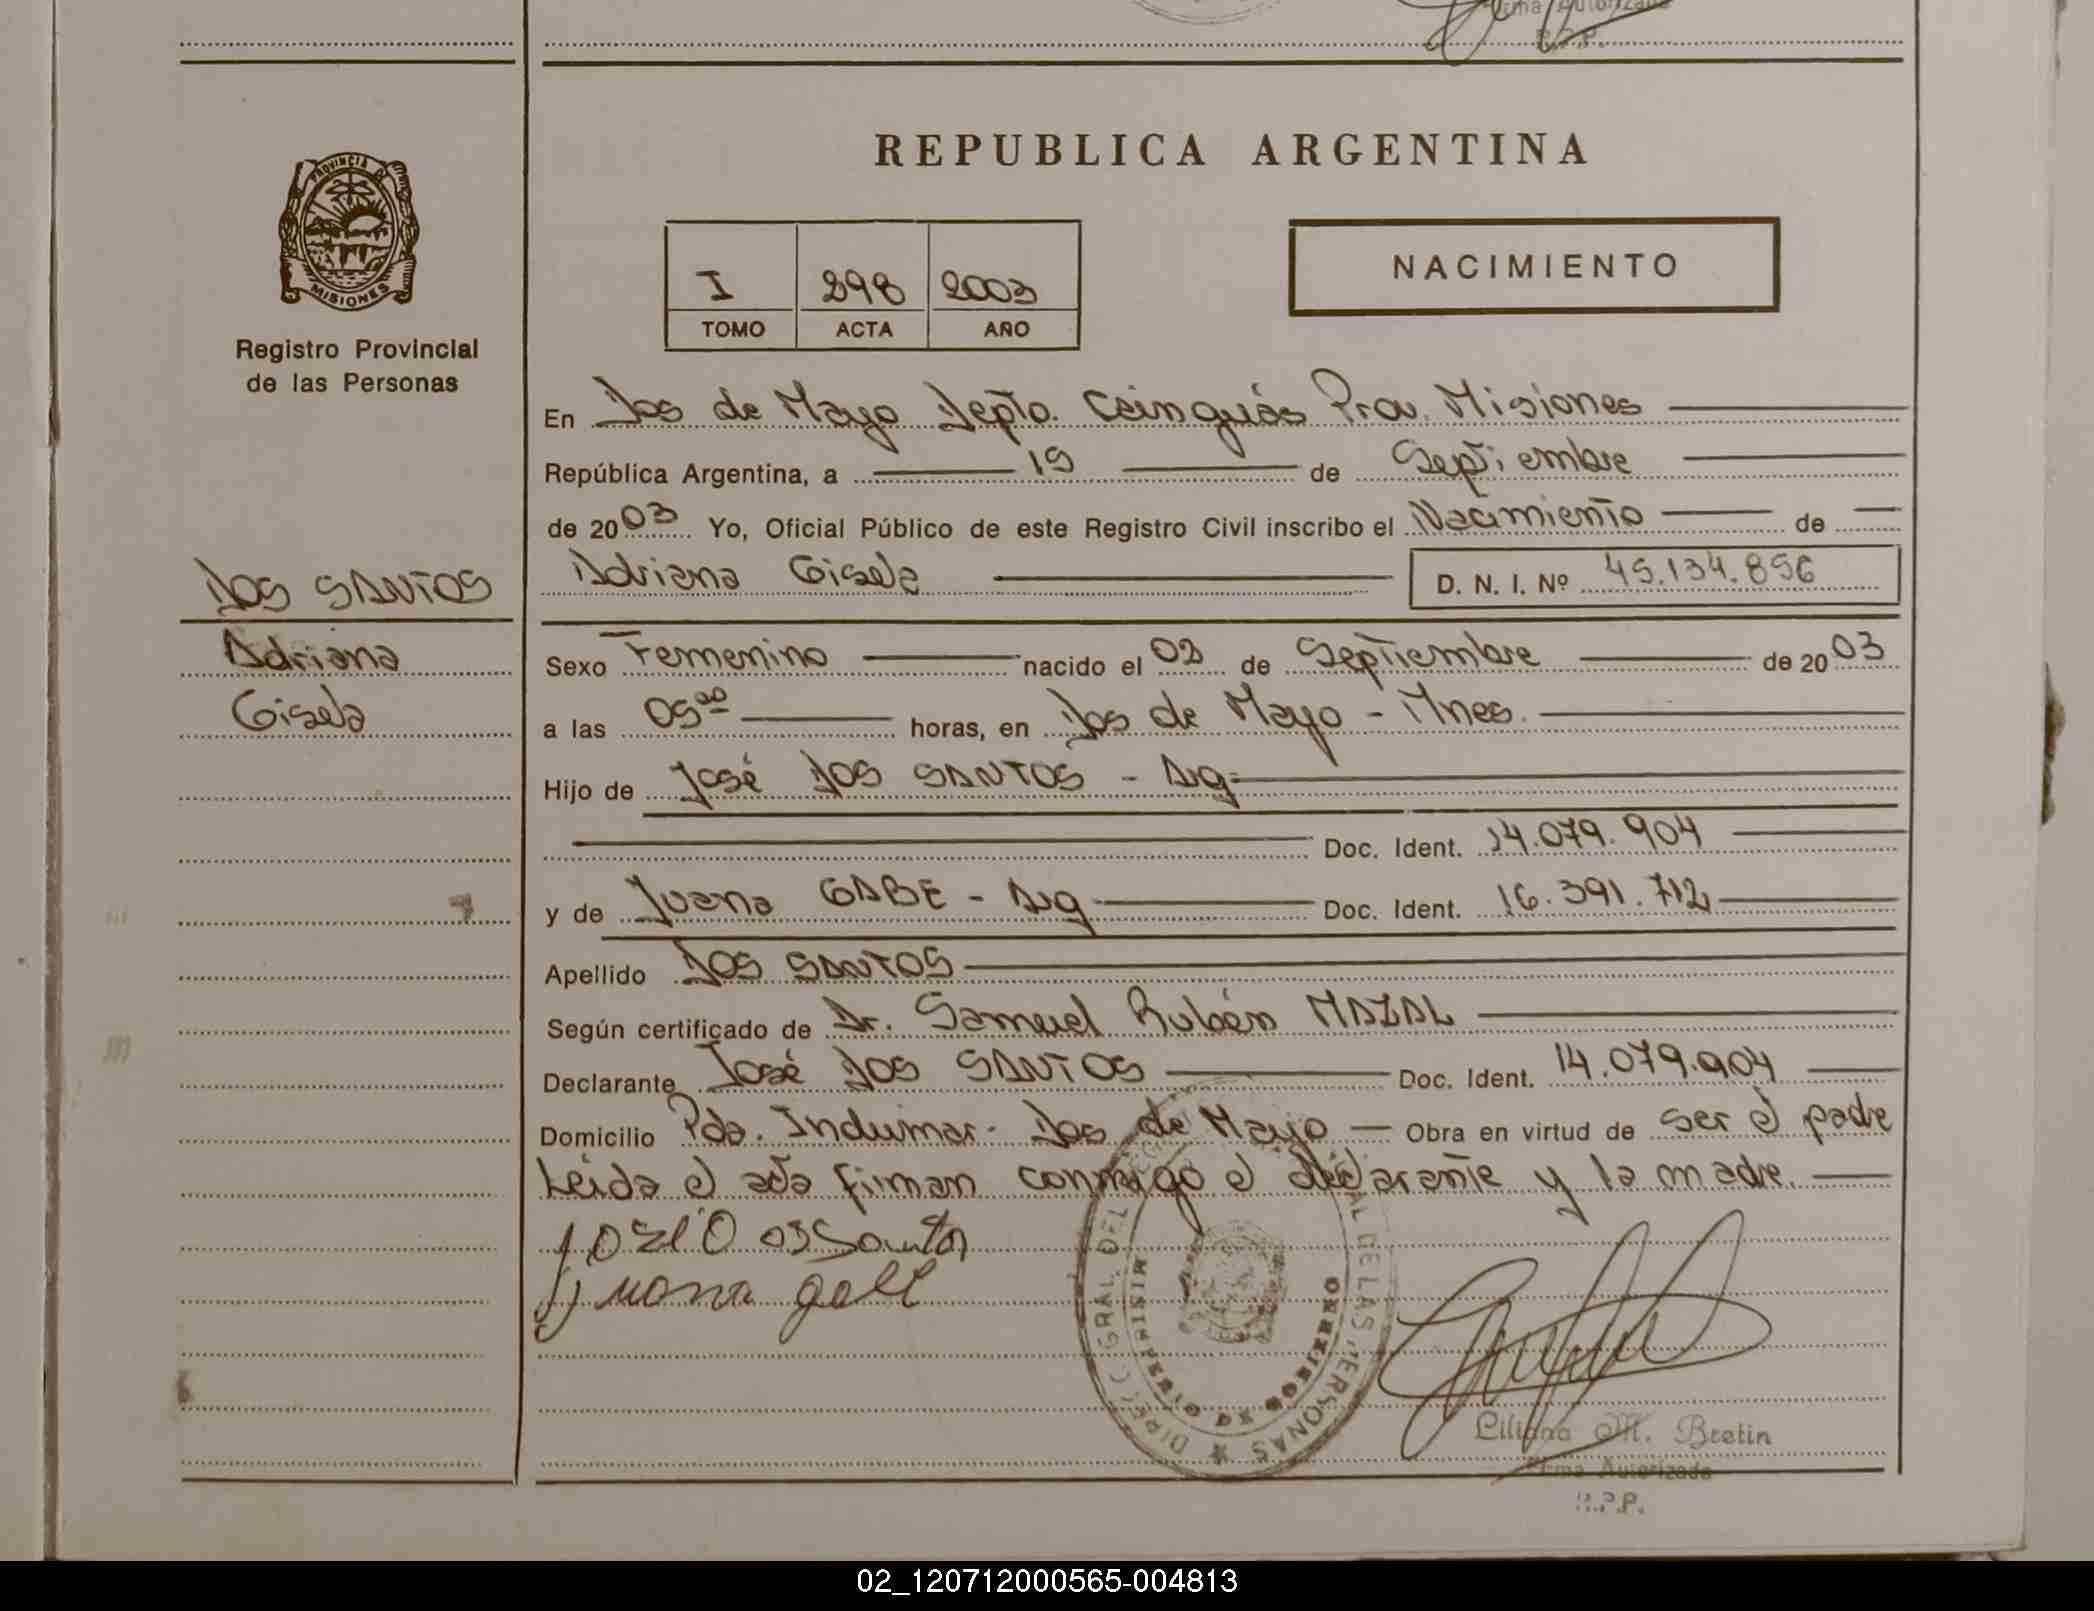 Firma Autorizada
R.P.P.
PROVINCIA DE
MISIONES
Registro Provincial
de las Personas
DOS SANTOS
Adriana
Gisela
REPUBLICA ARGENTINA
I 298 2003
TOMO ACTA AÑO
NACIMIENTO
En Dos de Mayo Depto. Cainguás Prov. Misiones
República Argentina, a 19 de Septiembre
de 2003 Yo, Oficial Público de este Registro Civil inscribo el Nacimiento de
Adriana Gisela D. N. I. Nº 45.134.856
Sexo Femenino nacido el 02 de Septiembre de 2003
a las 05 horas, en Dos de Mayo - Mnes.
Hijo de José DOS SANTOS - Arg
Doc. Ident. 14.079.904
y de Juana GABE - Arg Doc. Ident. 16.391.712
Apellido DOS SANTOS
Según certificado de Dr. Samuel Rubén MAZAL
Declarante José DOS SANTOS Doc. Ident. 14.079.904
Domicilio Pda. Indumar - Dos de Mayo Obra en virtud de ser el padre
Leída el acta firman conmigo el declarante y la madre.
DIREC. GRAL. DEL REG. DE LAS PERSONAS
MINISTERIO DE GOBIERNO
Liliana M. Bretin
Firma Autorizada
R.P.P.
02_120712000565-004813